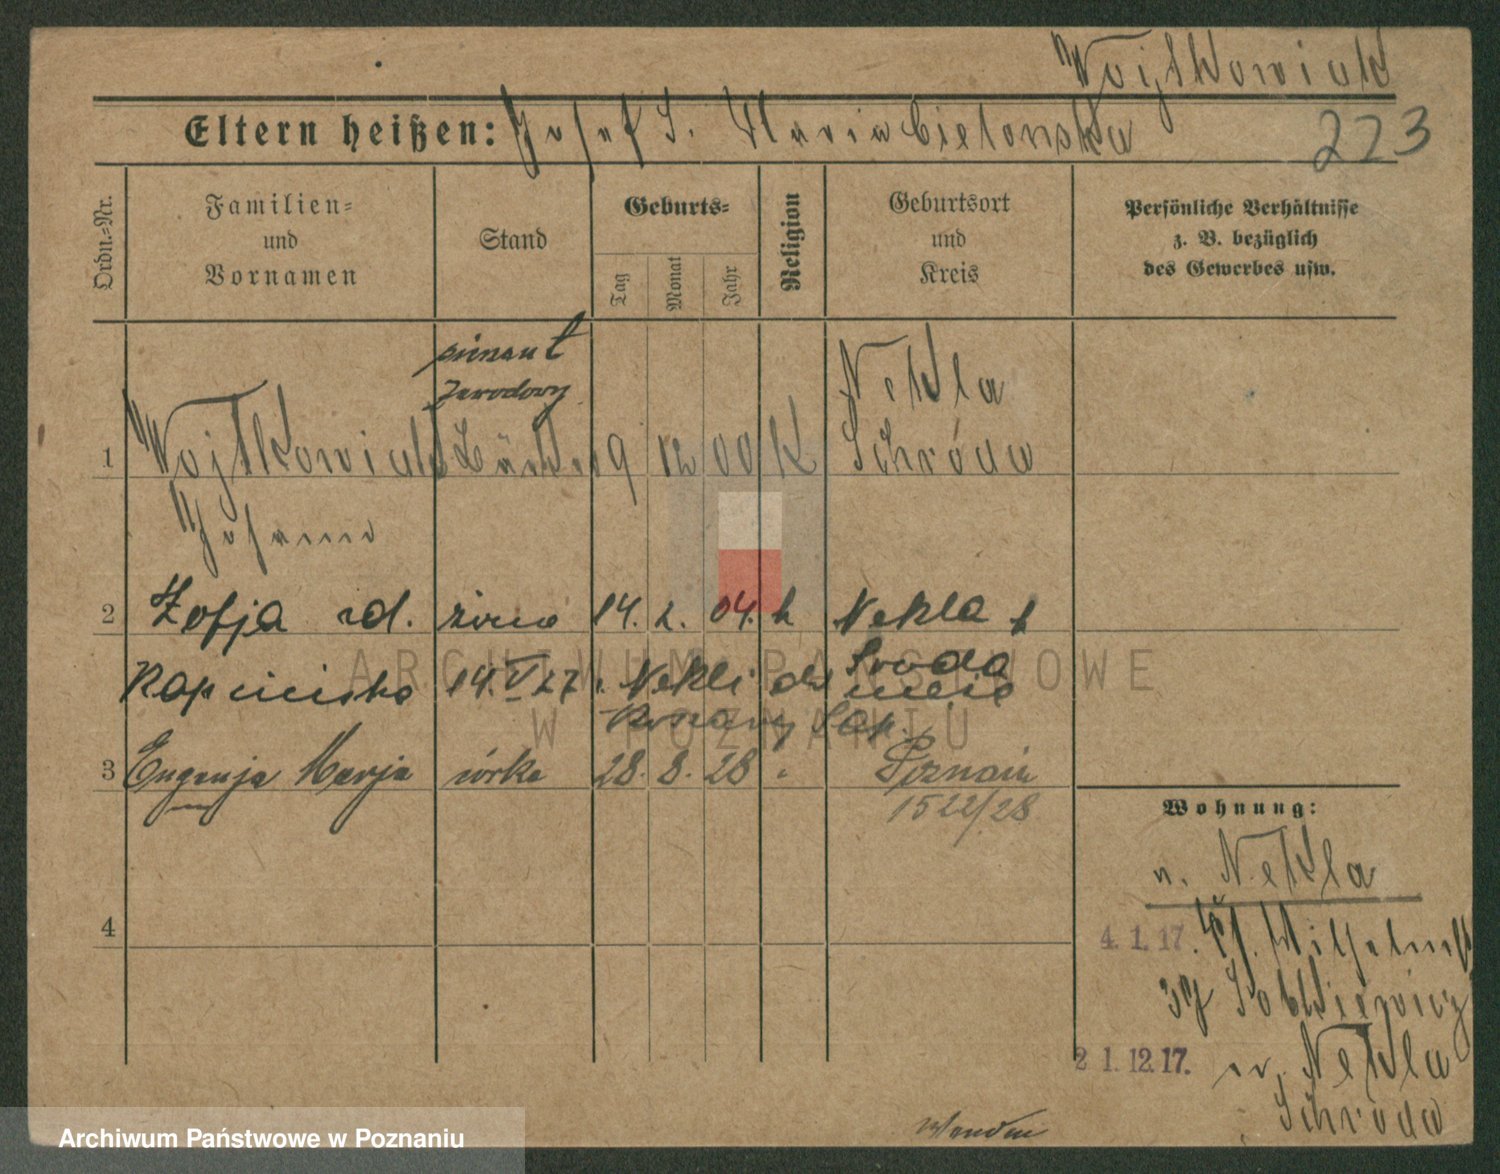 Wojtkowiak
Eltern heißen: Josef S. Maria Cielonska
223
Ordn.-Nr.
Familien- und Vornamen
Stand
Geburts-
Tag
Monat
Jahr
Religion
Geburtsort und Kreis
Persönliche Verhältnisse z. B. bezüglich des Gewerbes usw.
zawodowy
Nekla
1 Wojtkowiak 9 12 00 K Schroda
Johann
2 Zofja ud. żona 14. 2. 04. k Nekla p
14.V 27 Nekli Środa
3 Eugenja Marja córka 28. 8. 28 " Poznań
1522/28
Wohnung:
n. Nekla
4.1.17.
4
21.12.17. n. Nekla
Schroda
Wenden
ARCHIWUM PAŃSTWOWE
W POZNANIU
Archiwum Państwowe w Poznaniu